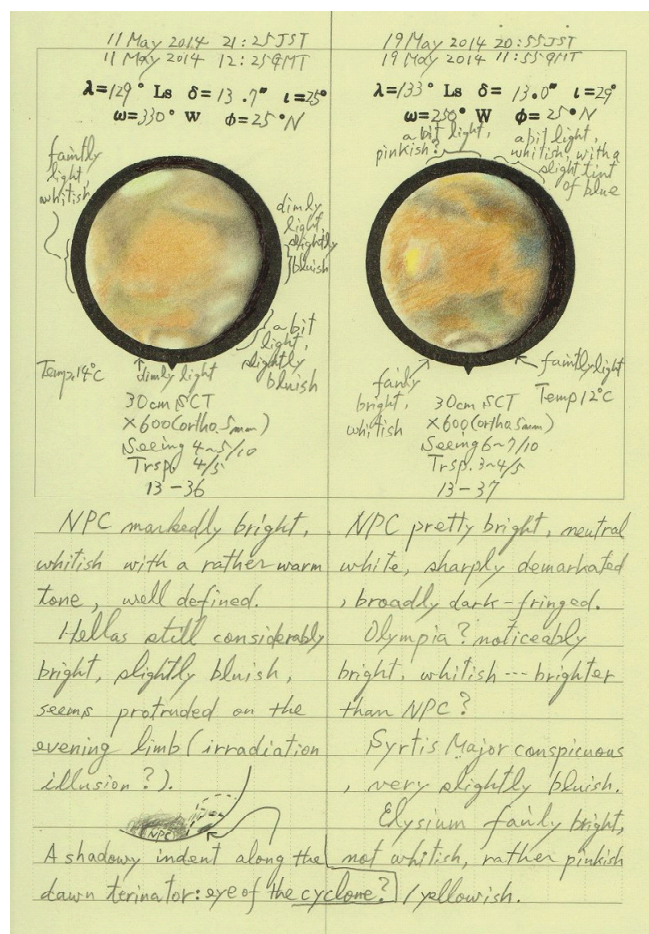 11 May 2014 21:25JST
11 May 2014 12:25GMT
λ=129° Ls δ=13.7" ι=25°
ω=330° W φ=25°N
faintly
light,
whitish
dimly
light,
slightly
bluish
a bit
light,
slightly
bluish
Temp.14°C
dimly light
30cm SCT
×600(ortho.5mm)
Seeing 4~5/10
Trsp. 4/5
13-36
NPC markedly bright,
whitish with a rather warm
tone, well defined.
Hellas still considerably
bright, slightly bluish,
seems protruded on the
evening limb (irradiation
illusion?).
NPC
A shadowy indent along the
dawn terinator: eye of the cyclone?
19 May 2014 20:55JST
19 May 2014 11:55GMT
λ=133° Ls δ=13.0" ι=29°
ω=250° W φ=25°N
a bit light,
pinkish?
a bit light,
whitish, with a
slight tint
of blue
fairly
bright,
whitish
faintly light
Temp 12°C
30cm SCT
×600(ortho.5mm)
Seeing 6~7/10
Trsp. 3~4/5
13-37
NPC pretty bright, neutral
white, sharply demarkated
, broadly dark-fringed.
Olympia? noticeably
bright, whitish --- brighter
than NPC?
Syrtis Major conspicuous
, very slightly bluish.
Elysium fairly bright,
not whitish, rather pinkish
/yellowish.